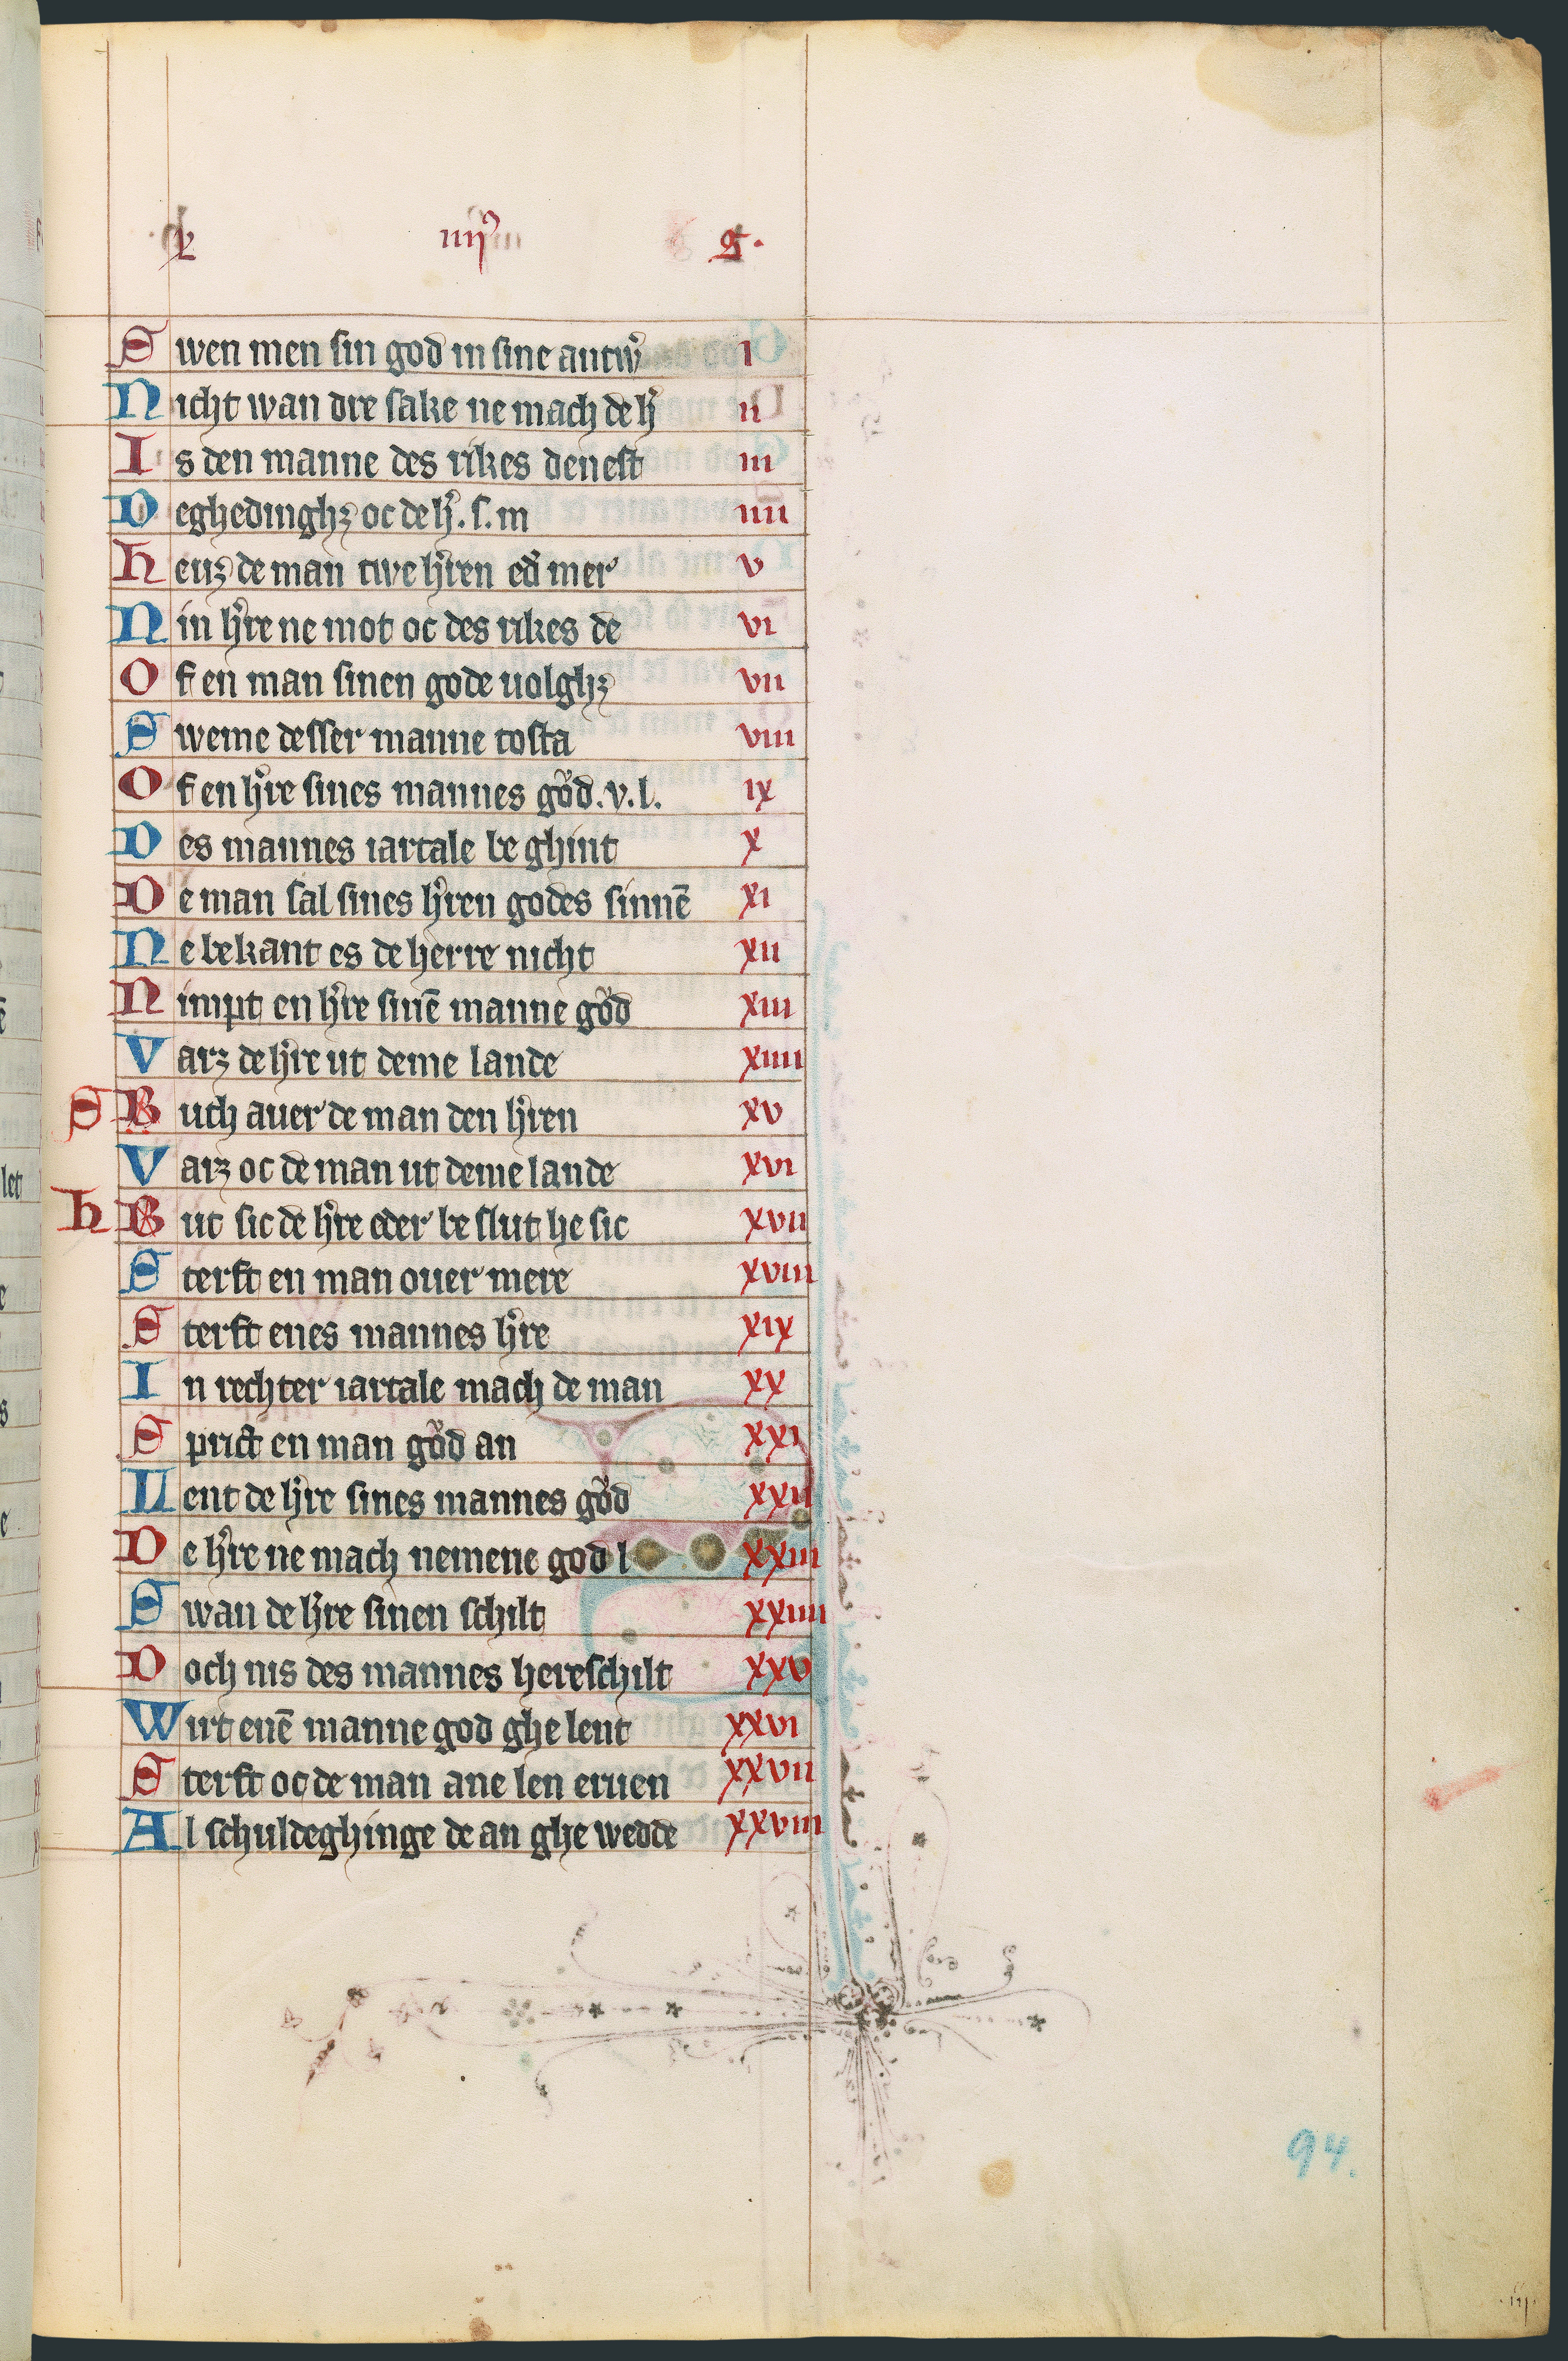 L iiij⁹ S.
Swen men sin god in sine antw᷑ i
Nicht wan dre sake ne mach de h᷑ ii
Is den manne des rikes denest iii
Deghedinghꝫ oc de h᷑. s. m iiii
Heuꝫ de man twe h᷑ren ed᷑ mer v
Nin h᷑re ne mot oc des rikes de vi
Of en man sinen gode uolghꝫ vii
Sweme desser manne tosta viii
Of en h᷑re sines mannes gůd. v. l. ix
Des mannes iartale be ghint x
De man sal sines h᷑ren godes sinnē xi
Ne bekant es de herre nicht xii
Nimpt en h᷑re sinē manne gůd xiii
Varꝫ de h᷑re ut deme lande xiiii
S Buth auer de man den h᷑ren xv
Varꝫ oc de man ut deme lande xvi
h But sic de h᷑re eder be slut he sic xvii
Sterft en man ouer mere xviii
Sterft enes mannes h᷑re xix
In rechter iartale mach de man xx
Sprict en man gůd an xxi
Lent de h᷑re sines mannes gůd xxii
De h᷑re ne mach nemene god l xxiii
Swan de h᷑re sinen schilt xxiiii
Doch nis des mannes hereschilt xxv
Wirt enē manne god ghe lent xxvi
Sterft oc de man ane len eruen xxvii
Al schuldeghinge de an ghe wedde xxviii
94.